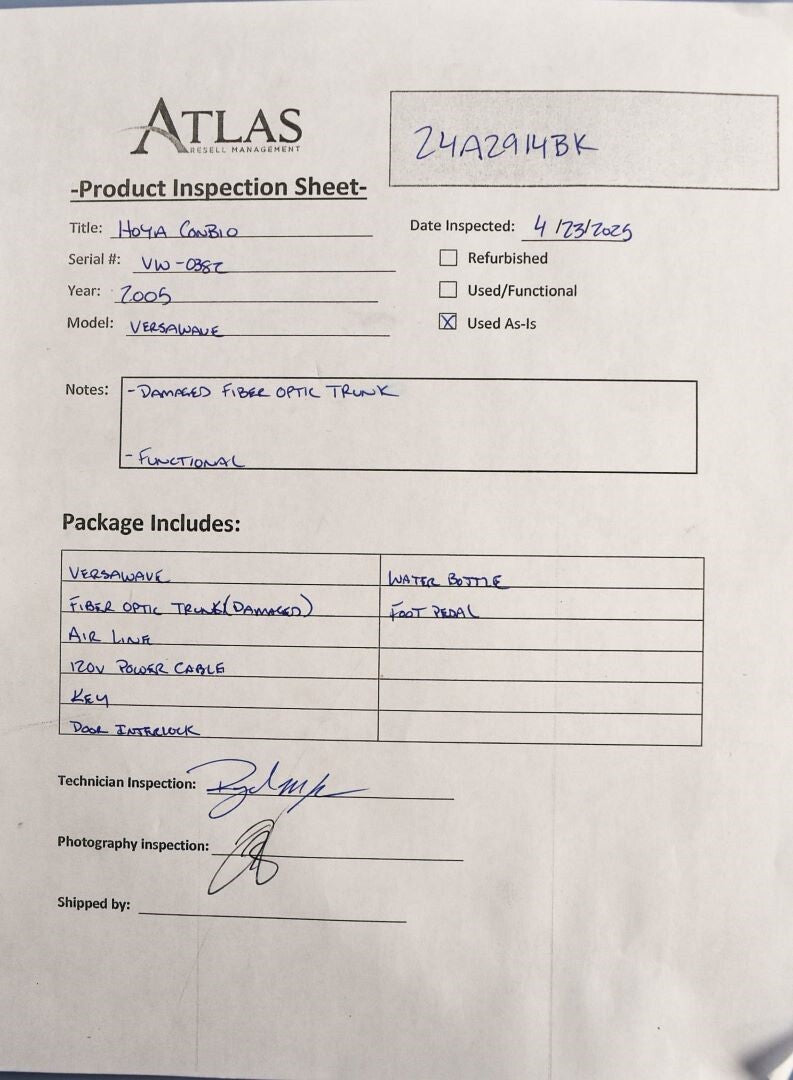 ATLAS
RESELL MANAGEMENT
24A2914BK
-Product Inspection Sheet-
Title: HOYA CONBIO
Date Inspected: 4/23/2025
Serial #: VW-0382
Refurbished
Year: 2005
Used/Functional
Model: VERSAWAVE
X Used As-Is
Notes: -DAMAGED FIBER OPTIC TRUNK
-FUNCTIONAL
Package Includes:
VERSAWAVE WATER BOTTLE
FIBER OPTIC TRUNK (DAMAGED) FOOT PEDAL
AIR LINE
120V POWER CABLE
KEY
DOOR INTERLOCK
Technician Inspection:
Photography inspection:
Shipped by: